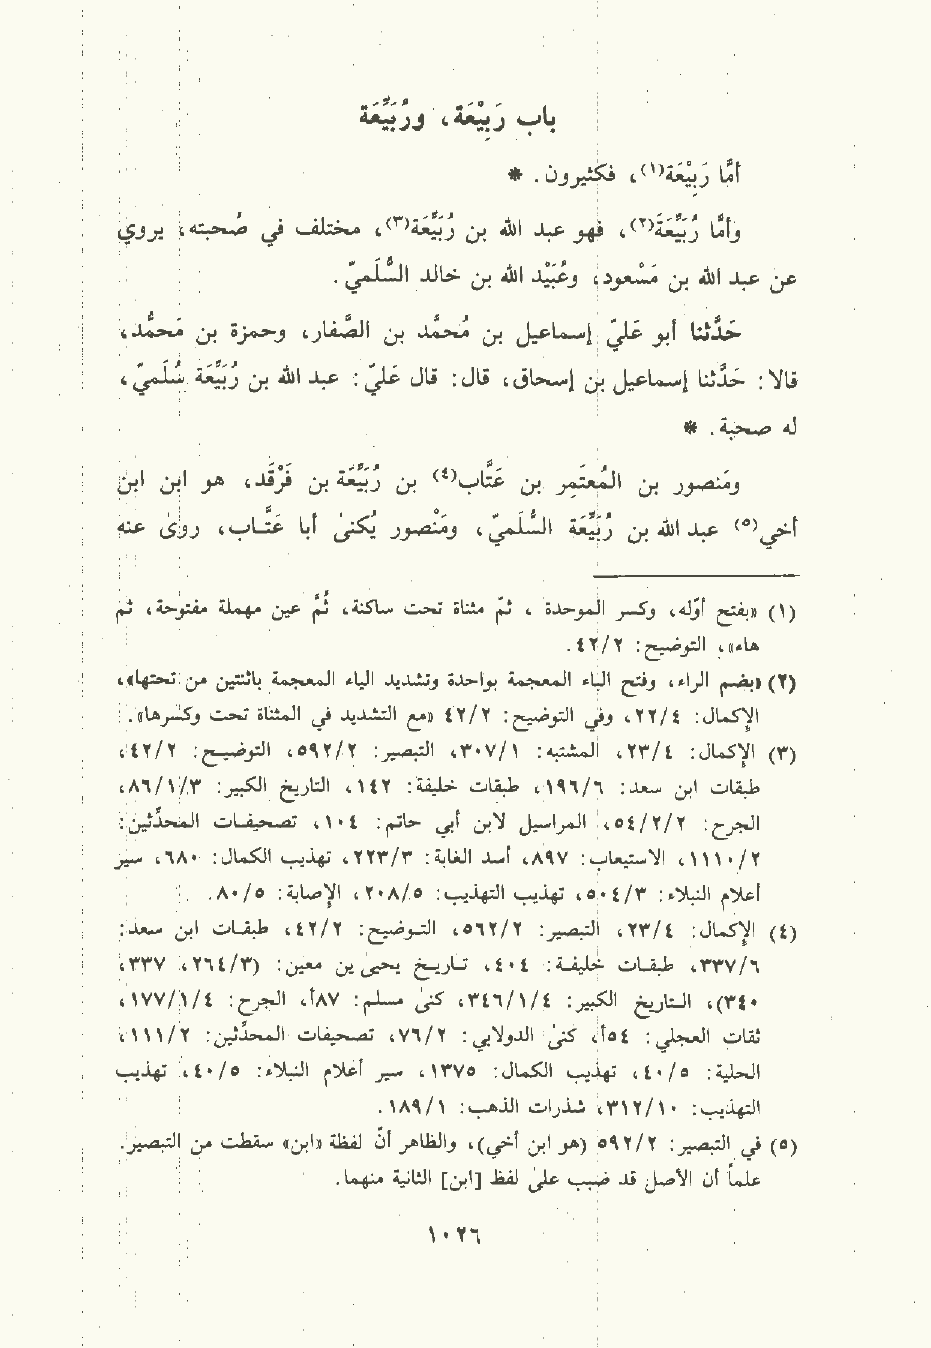 باب رَبِيْعَة، ورُبَيِّعَة
أمَّا رَبِيْعَة(١)، فكثيرون. *
وأمَّا رُبَيِّعَة(٢)، فهو عبد الله بن رُبَيِّعَة(٣)، مختلف في صُحبته، يروي
عن عبد الله بن مَسْعود، وعُبَيْد الله بن خالد السُّلَميّ.
حَدَّثنا أبو عَليّ إسماعيل بن محُمَّد بن الصَّفار، وحمزة بن محَمَّد،
قالا: حَدَّثنا إسماعيل بن إسحاق، قال: قال عَليّ: عبد الله بن رُبَيِّعَة سُلَميّ،
له صحبة. *
ومَنصور بن المُعتَمِر بن عَتَّاب(٤) بن رُبَيِّعَة بن فَرْقَد، هو ابن ابن
أخي(٥) عبد الله بن رُبَيِّعَة السُّلَميّ، ومَنْصور يُكنىٰ أبا عَتَّاب، روىٰ عنه
(١) «بفتح أوّله، وكسر الموحدة ، ثم مثناة تحت ساكنة، ثُم عين مهملة مفتوحة، ثم
هاء»، التوضيح: ٤٢/٢.
(٢) «بضم الراء، وفتح الباء المعجمة بواحدة وتشديد الياء المعجمة باثنتين من تحتها»،
الإكمال: ٢٢/٤، وفي التوضيح: ٤٢/٢ «مع التشديد في المثناة تحت وكسرها».
(٣) الإكمال: ٢٣/٤، المشتبه: ٣٠٧/١، التبصير: ٥٩٢/٢، التوضيح: ٤٢/٢،
طبقات ابن سعد: ١٩٦/٦، طبقات خليفة: ١٤٢، التاريخ الكبير: ٨٦/١/٣،
الجرح: ٥٤/٢/٢، المراسيل لابن أبي حاتم: ١٠٤، تصحيفات المحدِّثين:
١١١٠/٢، الاستيعاب: ٨٩٧، أسد الغابة: ٢٢٣/٣، تهذيب الكمال: ٦٨٠، سير
أعلام النبلاء: ٥٠٤/٣، تهذيب التهذيب: ٢٠٨/٥، الإصابة: ٨٠/٥.
(٤) الإكمال: ٢٣/٤، التبصير: ٥٦٢/٢، التوضيح: ٤٢/٢، طبقات ابن سعد:
٣٣٧/٦، طبقات خليفة: ٤٠٤، تاريخ يحيىٰ بن معين: (٢٦٤/٣، ٣٣٧،
٣٤٠)، التاريخ الكبير: ٣٤٦/١/٤، كنىٰ مسلم: ٨٧أ، الجرح: ١٧٧/١/٤،
ثقات العجلي: ٥٤أ، كنىٰ الدولابي: ٧٦/٢، تصحيفات المحدِّثين: ١١١/٢،
الحلية: ٤٠/٥، تهذيب الكمال: ١٣٧٥، سير أعلام النبلاء: ٤٠/٥، تهذيب
التهذيب: ٣١٢/١٠، شذرات الذهب: ١٨٩/١.
(٥) في التبصير: ٥٩٢/٢ (هو ابن أخي)، والظاهر أنّ لفظة «ابن» سقطت من التبصير.
علماً أن الأصل قد ضبب علىٰ لفظ [ابن] الثانية منهما.
١٠٢٦